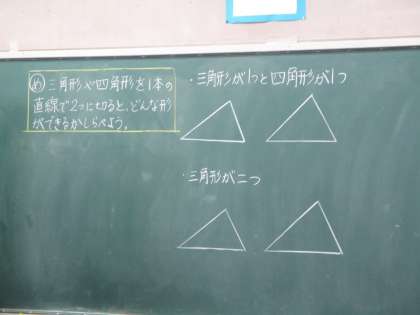 め 三角形や四角形を1本の
直線で2つに切ると、どんな形
ができるかしらべよう。
・三角形が1つと四角形が1つ
・三角形が二つ